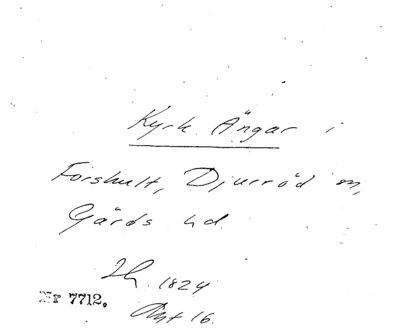 Kyrk Ängar i
Forshult, Djurröd m,
Gärds hd.
1824
Nr 7712.
16.